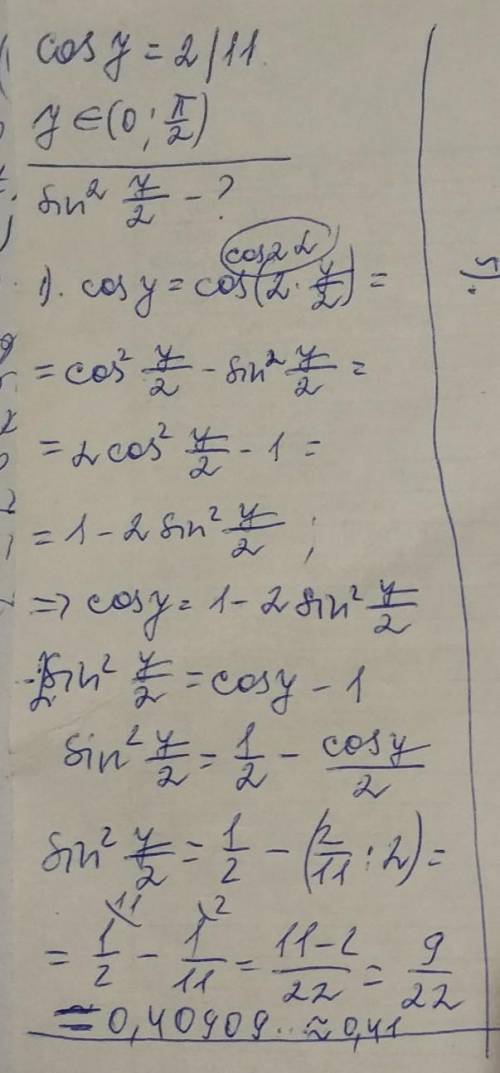 cos y = 2/11
y ∈ (0; π/2)
sin² y/2 - ?
cos2α
1). cos y = cos(2 · y/2) =
= cos² y/2 - sin² y/2 =
= 2cos² y/2 - 1 =
= 1 - 2 sin² y/2 ;
=> cos y = 1 - 2 sin² y/2
-2 sin² y/2 = cos y - 1
sin² y/2 = 1/2 - cos y/2
sin² y/2 = 1/2 - (2/11 : 2) =
= 1/2 \11 - 1/11 \2 = 11-2/22 = 9/22
= 0,40909.. ≈ 0,41